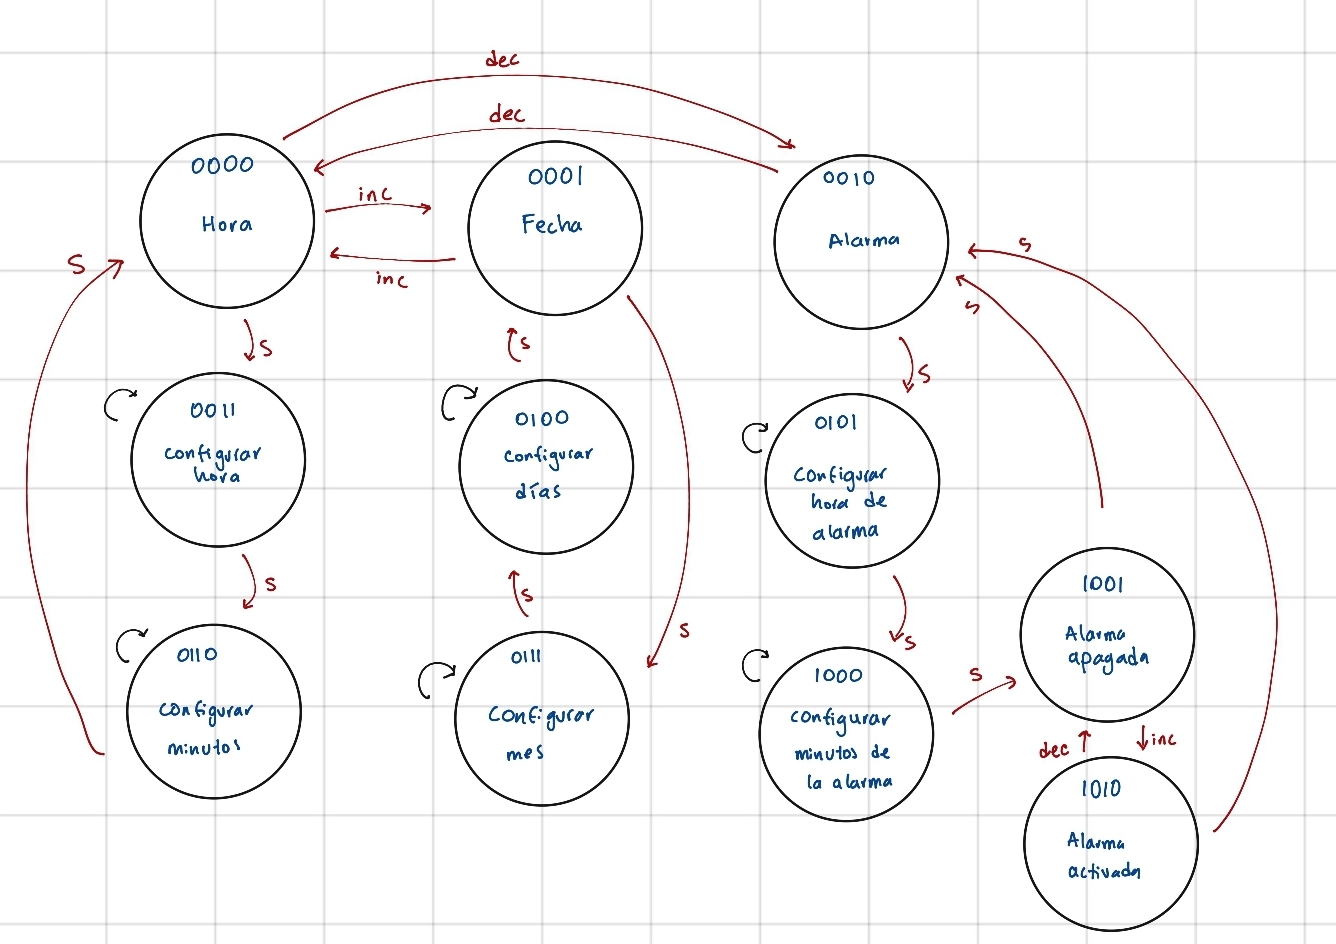 dec
dec
0000
Hora
inc
inc
0001
Fecha
0010
Alarma
S
s
s
S
s
S
0011
configurar
hora
0100
configurar
días
0101
configurar
hora de
alarma
s
s
s
s
0110
configurar
minutos
0111
configurar
mes
1000
configurar
minutos de
la alarma
s
1001
Alarma
apagada
dec
inc
1010
Alarma
activada